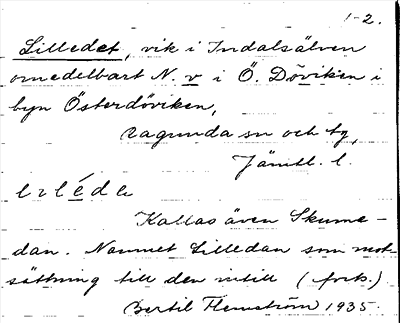 1-2.
Lilledet, vik i Indalsälven
omedelbart N. v i Ö. Döviken i
byn Österdöviken,
Ragunda sn och tg,
Jämtl. l.
Kallas även Skume-
dan. Namnet Lilledan som mot
sättning till den intill (forts.)
Bertil Flemström 1935.